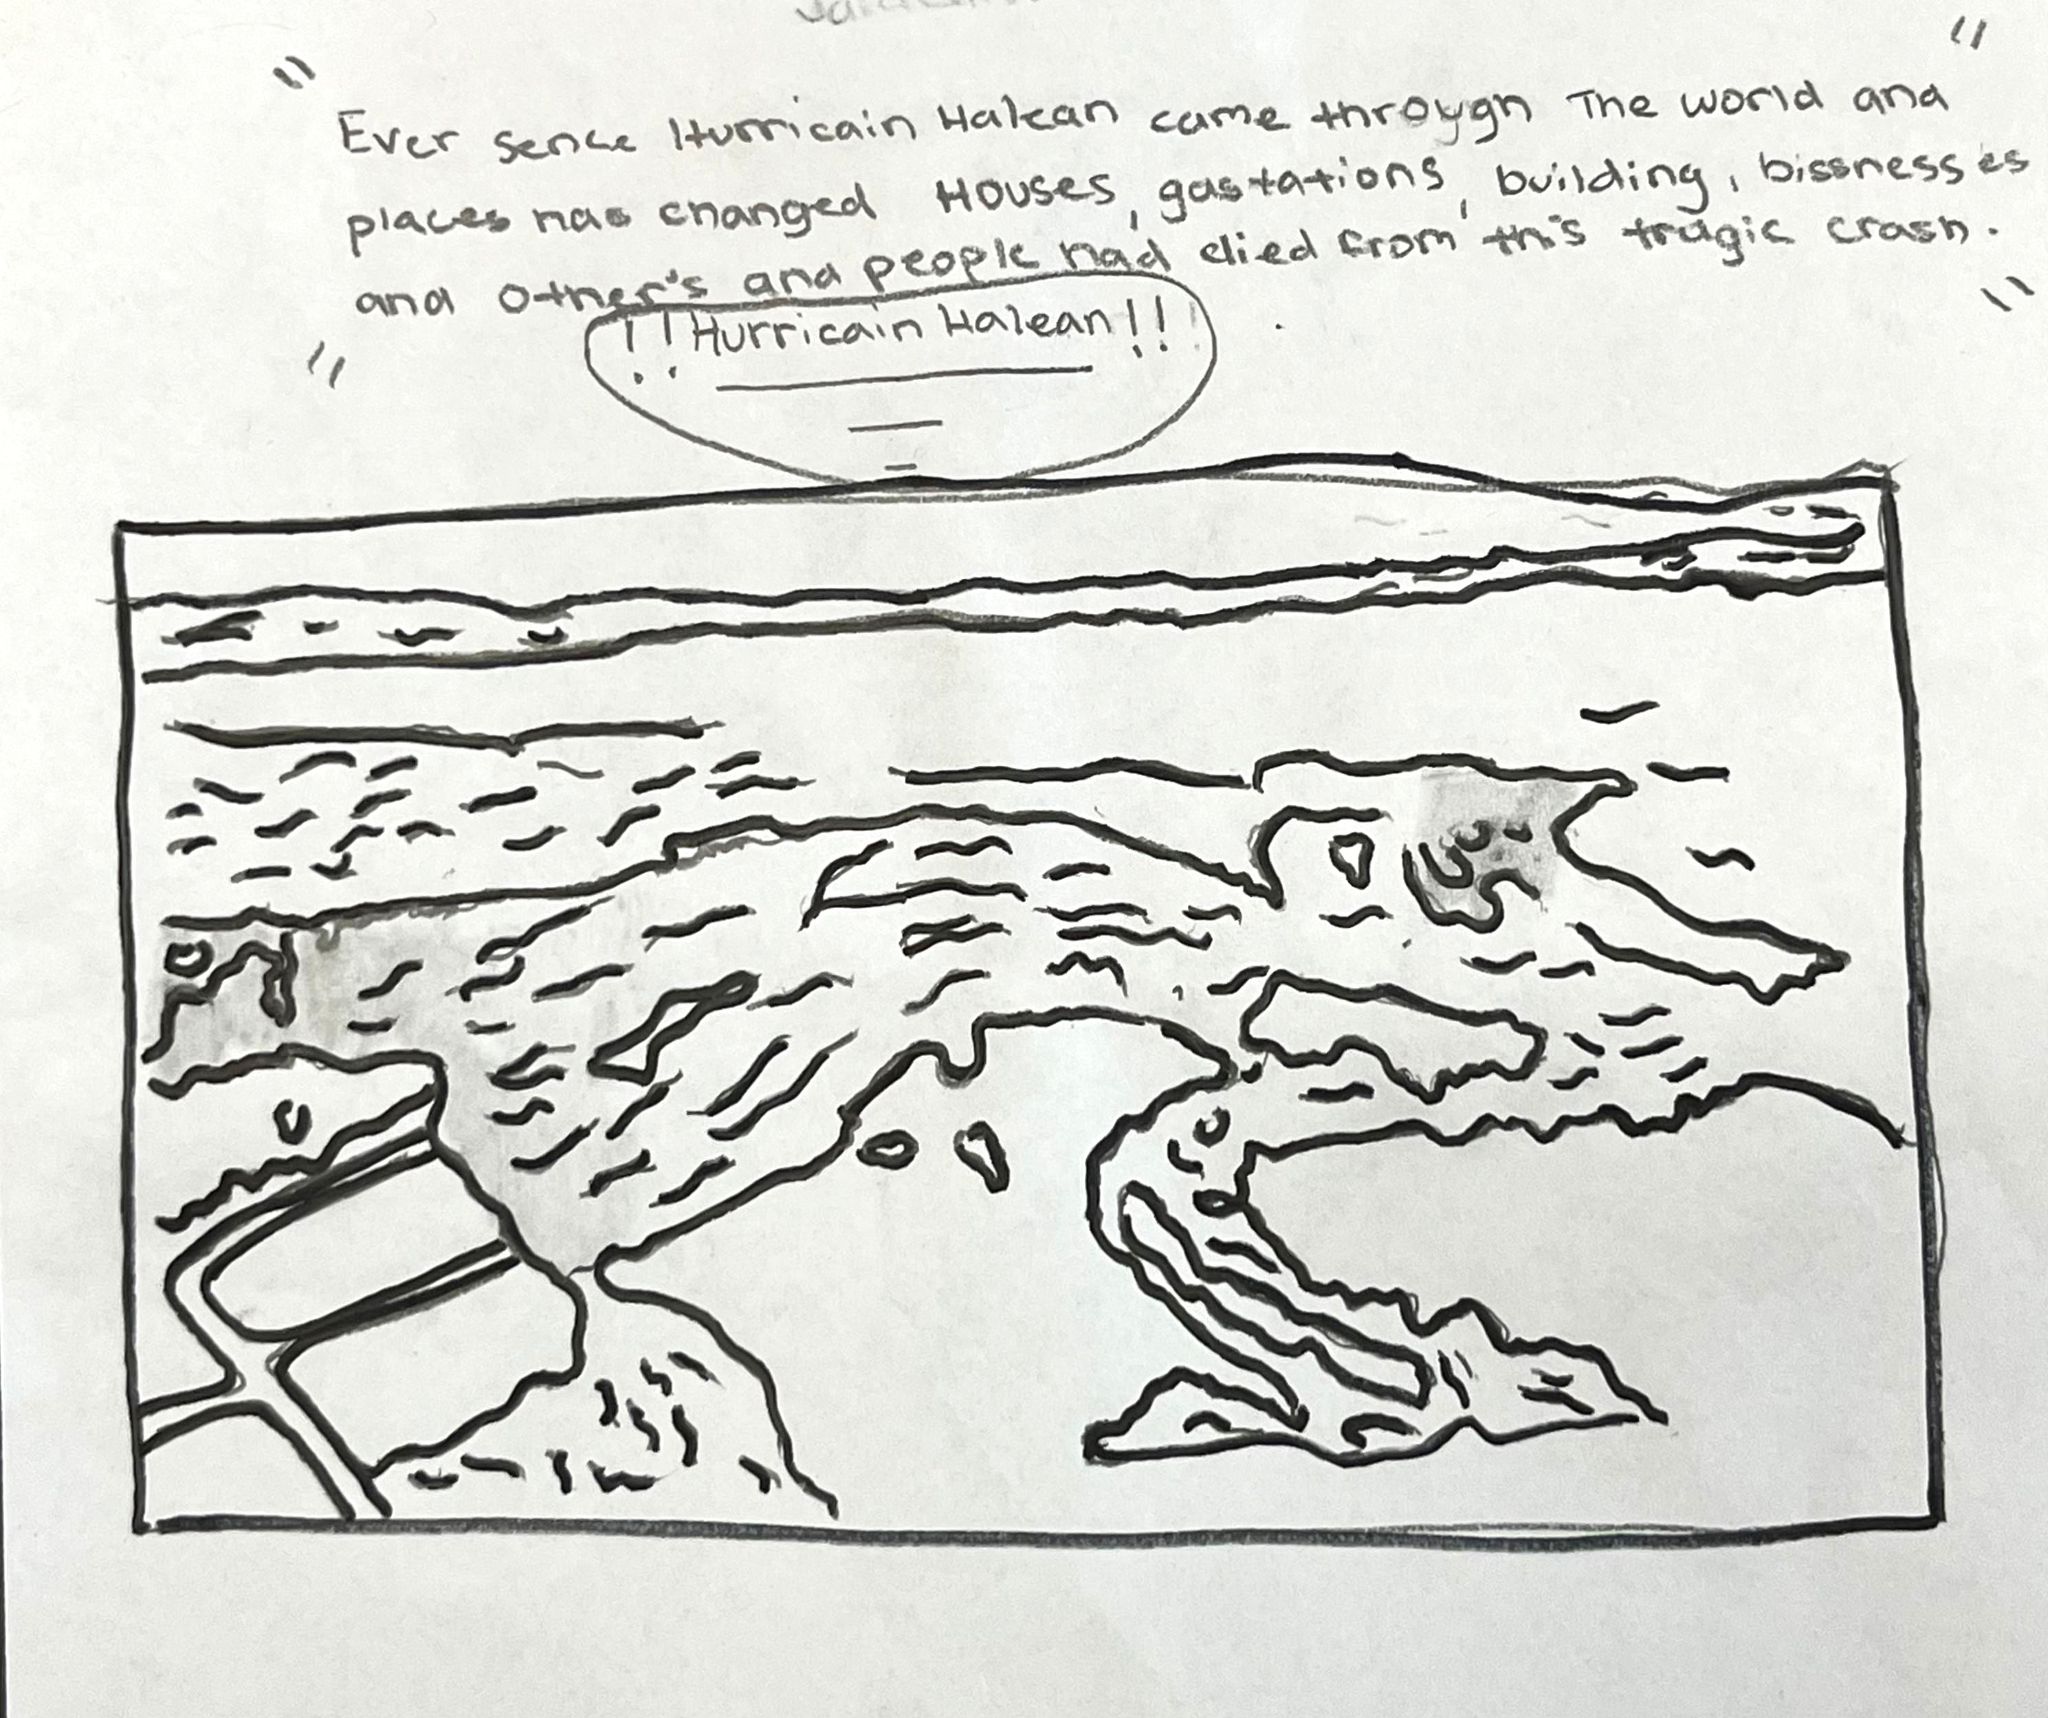 " "
Ever sence Hurricain Halean came throygh The world and
places has changed Houses, gastations, building, bissnesses
and other's and people had died from this tragic crash.
" "
!!Hurricain Halean!!